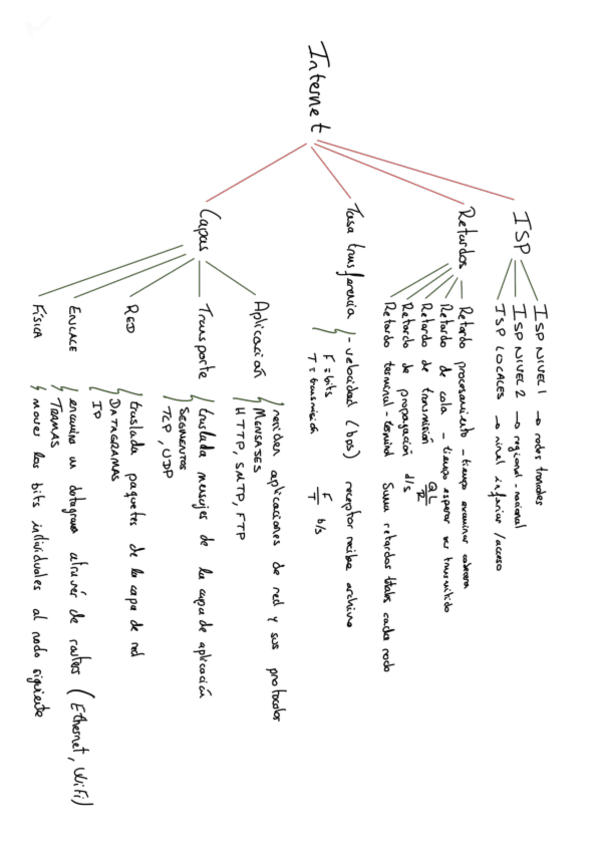 Internet
ISP
ISP NIVEL 1 → nodos troncales
ISP NIVEL 2 → regional-nacional
ISP LOCALES → nivel inferior/acceso
Retardos
Retardo procesamiento - tiempo examinar cabecera
Retardo de cola - tiempo esperar ser transmitido
Retardo de transmisión
Retardo de propagación d/s
Retardo terminal-terminal Suma retardos totales cada nodo
Tasa transferencia - velocidad (bps) receptor recibe archivo
F=bits
T=transmisión
F/T b/s
Capas
Aplicación residen aplicaciones de red y sus protocolos
MENSAJES
HTTP, SMTP, FTP
Transporte traslada mensajes de la capa de aplicación
SEGMENTOS
TCP, UDP
RED traslada paquetes de la capa de red
DATAGRAMAS
IP
ENLACE encamina un datagrama através de routers (Ethernet, WiFi)
TRAMAS
FÍSICA mover los bits individuales al nodo siguiente